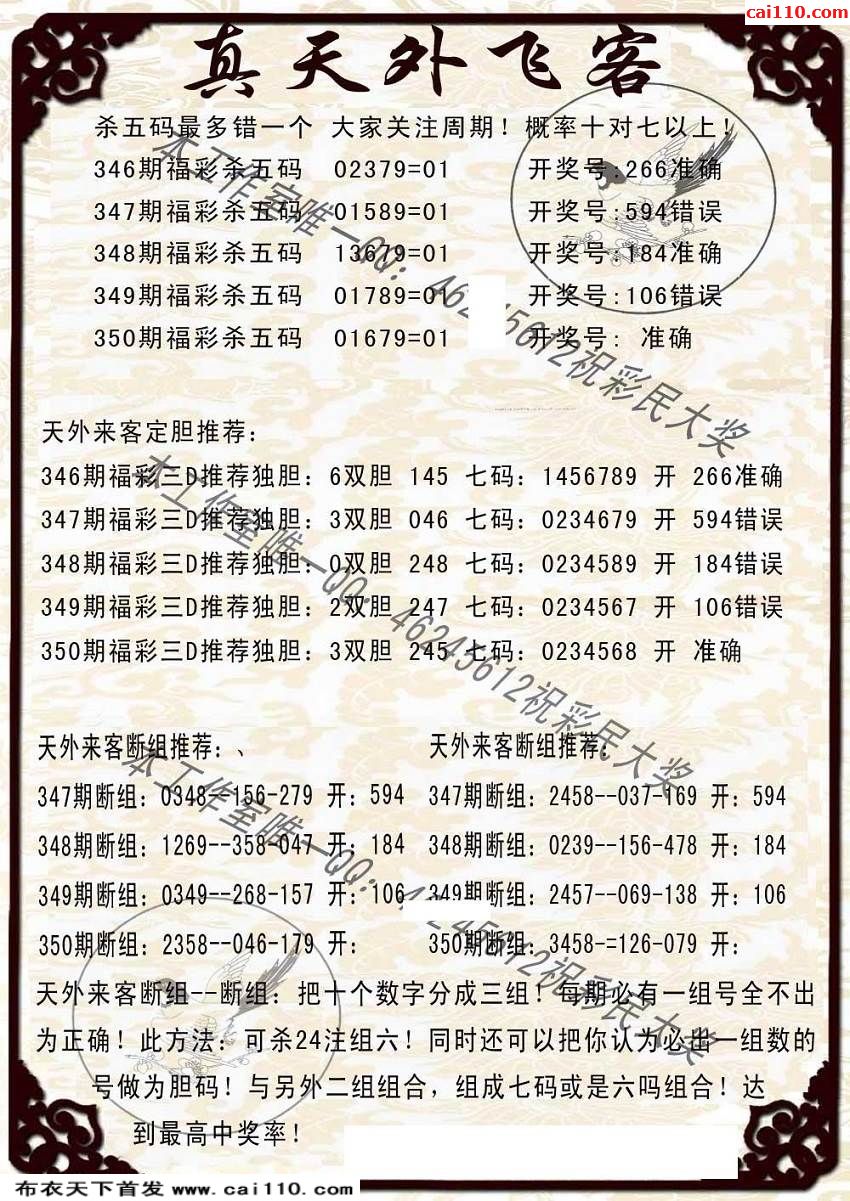 cai110.com
真天外飞客
杀五码最多错一个 大家关注周期！概率十对七以上！
346期福彩杀五码 02379=01 开奖号:266准确
347期福彩杀五码 01589=01 开奖号:594错误
348期福彩杀五码 13679=01 开奖号:184准确
349期福彩杀五码 01789=01 开奖号:106错误
350期福彩杀五码 01679=01 开奖号: 准确
本工作室唯一QQ：46245612祝彩民大奖
天外来客定胆推荐：
346期福彩三D推荐独胆：6双胆 145 七码：1456789 开 266准确
347期福彩三D推荐独胆：3双胆 046 七码：0234679 开 594错误
348期福彩三D推荐独胆：0双胆 248 七码：0234589 开 184错误
349期福彩三D推荐独胆：2双胆 247 七码：0234567 开 106错误
350期福彩三D推荐独胆：3双胆 245 七码：0234568 开 准确
本工作室唯一QQ：46245612祝彩民大奖
天外来客断组推荐：、 天外来客断组推荐：
347期断组：0348--156-279 开：594 347期断组：2458--037-169 开：594
348期断组：1269--358-047 开：184 348期断组：0239--156-478 开：184
349期断组：0349--268-157 开：106 349期断组：2457--069-138 开：106
350期断组：2358--046-179 开： 350期断组：3458-=126-079 开：
本工作室唯一QQ：46245612祝彩民大奖
天外来客断组--断组：把十个数字分成三组！每期必有一组号全不出
为正确！此方法：可杀24注组六！同时还可以把你认为必出一组数的
号做为胆码！与另外二组组合，组成七码或是六吗组合！达
到最高中奖率！
布衣天下首发 www.cai110.com